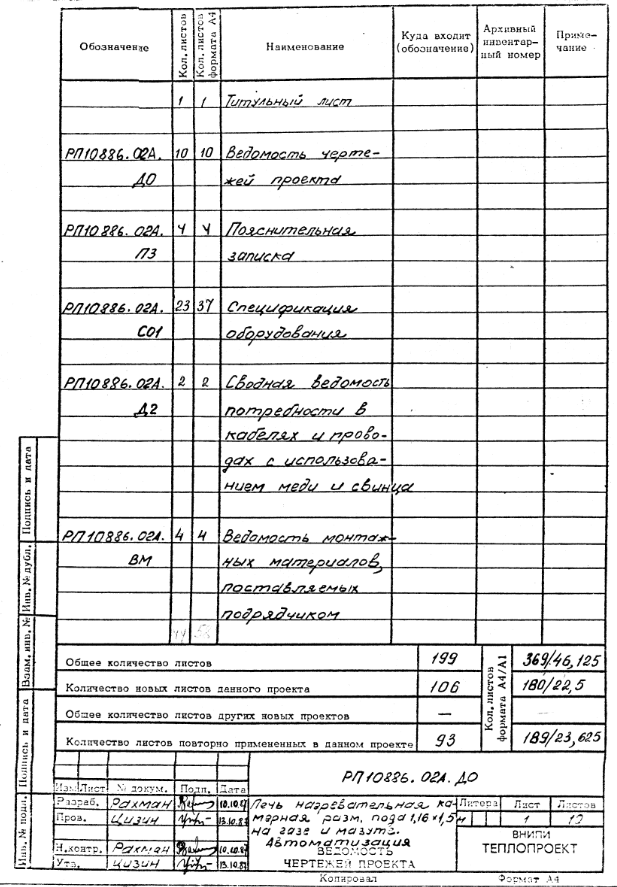 Обозначение Кол. листов Кол. листов формата А4 Наименование Куда входит (обозначение) Архивный инвентарный номер Примечание
1 1 Титульный лист
РП10886.02А. 10 10 Ведомость черте-
ДО жей проекта
РП10886.02А. 4 4 Пояснительная
ПЗ записка
РП10886.02А. 23 37 Спецификация
СО1 оборудования
РП10886.02А. 2 2 Сводная ведомость
Д2 потребности в
кабелях и прово-
дах с использова-
нием меди и свинца
РП10886.02А. 4 4 Ведомость монтаж-
ВМ ных материалов,
поставляемых
подрядчиком
Общее количество листов 199 Кол. листов формата А4/А1 369/46,125
Количество новых листов данного проекта 106 180/22,5
Общее количество листов других новых проектов —
Количество листов повторно примененных в данном проекте 93 189/23,625
РП10886.02А.ДО
Изм. Лист № докум. Подп. Дата
Разраб. Рахман 10.10.87 Печь нагревательная ка- Литера Лист Листов
Пров. Цизин 13.10.87 мерная разм. пода 1,16х1,5м 1 10
на газе и мазуте. ВНИПИ
Н.контр. Рахман 10.10.87 Автоматизация ТЕПЛОПРОЕКТ
ВЕДОМОСТЬ
Утв. Цизин 13.10.87 ЧЕРТЕЖЕЙ ПРОЕКТА
Копировал Формат А4
Подпись и дата
Инв. № дубл.
Взам. инв. №
Подпись и дата
Инв. № подл.